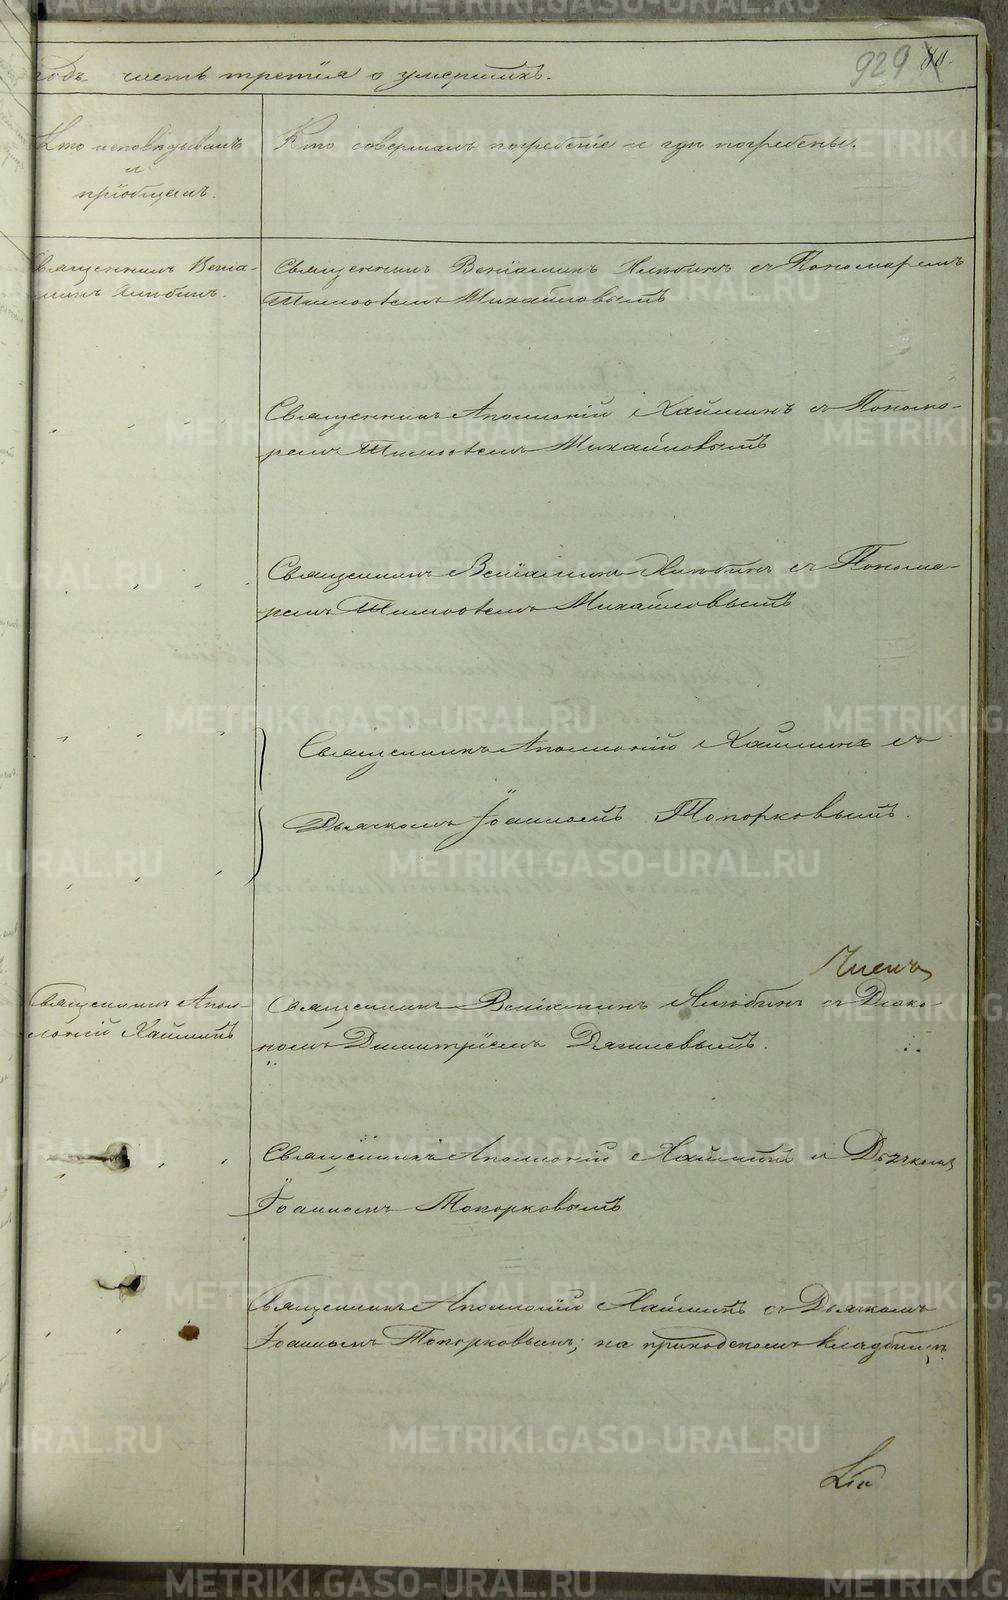 годъ часть третія о умершихъ.
929
Кто исповѣдывалъ
и
пріобщалъ.
Кто совершалъ погребеніе и гдѣ погребены.
Священникъ Веніа-
минъ
Священникъ Веніаминъ съ Пономаремъ
Тимоѳеемъ Михайловымъ
Священникъ Аполлоній Хайминъ съ Понома-
ремъ Тимоѳеемъ Михайловымъ
Священникъ Веніаминъ съ Понома-
ремъ Тимоѳеемъ Михайловымъ
Священникъ Аполлоній Хайминъ съ
Дьячкомъ Іоанномъ Топорковымъ.
Членъ
Священникъ Апол-
лоній Хайминъ
Священникъ Веніаминъ съ Діако-
номъ Димитріемъ Дягилевымъ.
Священникъ Аполлоній Хайминъ и Дьячкомъ
Іоанномъ Топорковымъ
Священникъ Аполлоній Хайминъ съ Дьячкомъ
Іоанномъ Топорковымъ; на приходскомъ кладбищѣ.
METRIKI.GASO-URAL.RU